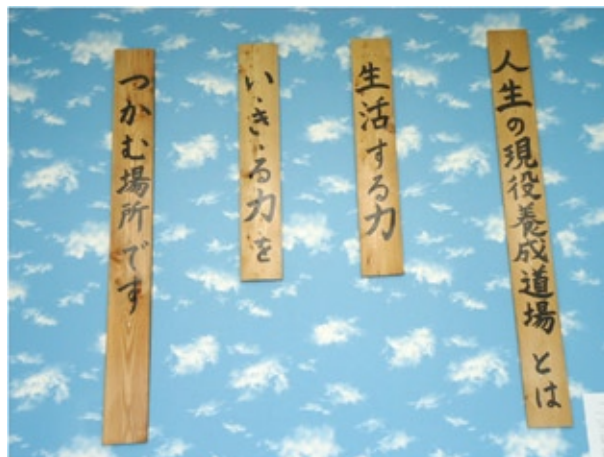 人生の現役養成道場とは
生活する力
いきる力を
つかむ場所です